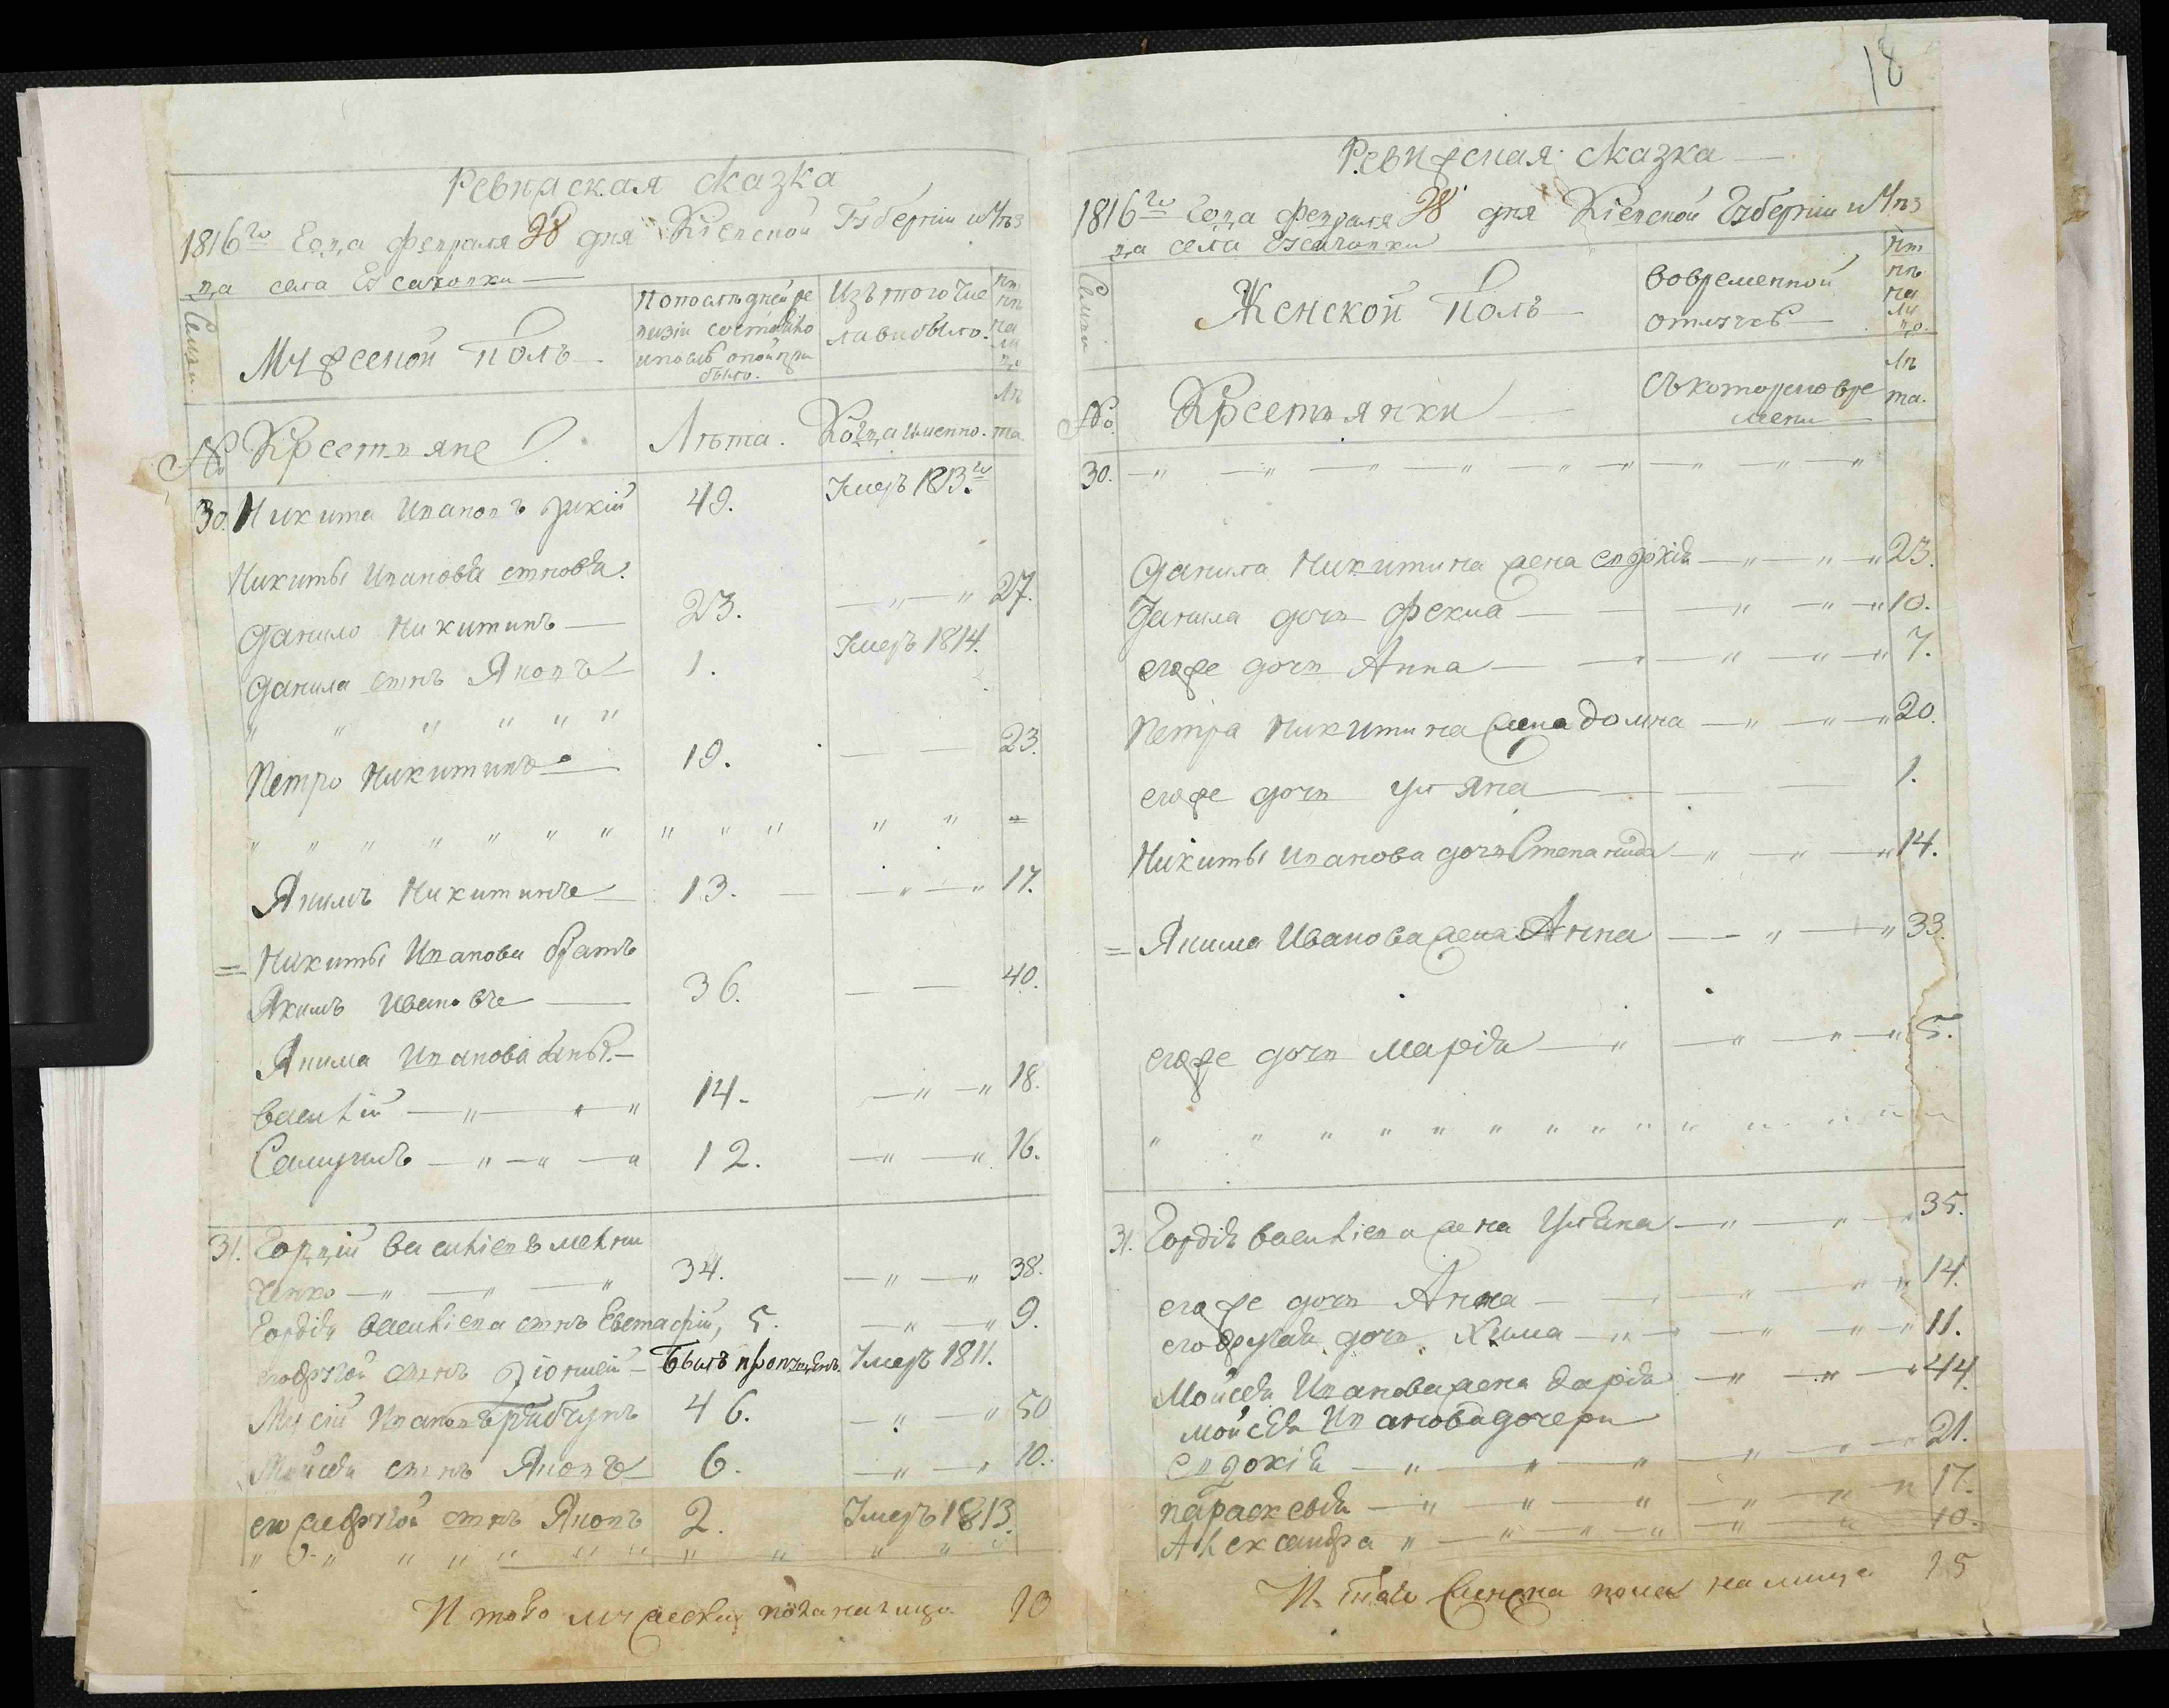 18
Ревизская сказка
1816го Года февраля 28 дня Кіевской Губерніи Уѣз
да села Есаховки
Семьи.
Мужеской полъ
По последней ре
визіи состояло
и после оной при
было.
Изъ того чис
ла выбыло.
Ны
нѣ
на
ли
цо
№
Крестьяне
Лѣта.
Когда именно.
Лѣ
та
30. Никита Ивановъ Дикій 49. Умеръ 1813го
Никиты Иванова сыновья.
Данило Никитинъ 23. 27.
Данила сынъ Яковъ 1. Умеръ 1814.
Петро Никитинъ 19. 23.
Якимъ Никитинъ 13. 17.
Никиты Иванова братъ
Якимъ Ивановъ 36. 40.
Якима Иванова сыны.
Василій 14. 18.
Самуилъ 12. 16.
31. Гордій Васильевъ Мельни
ченко 34. 38.
Гордія Васильева сынъ Евстафій, 5. 9.
его другой сынъ Діонисій Былъ пропущенъ. Умеръ 1811.
Мусій Ивановъ Рябчунъ 46. 50
Мойсея сынъ Яковъ 6. 10.
его же другой сынъ Яковъ 2. Умеръ 1813.
Итого мужеска пола налицо 10
Ревизская сказка
1816го Года февраля 28 дня Кіевской Губерніи Уѣз
да села Есаховки
Семьи
Женской полъ
Во временной
отлучкѣ
Ны
нѣ
на
ли
цо.
№
Крестьянки
Съ котораго вре
мени
Лѣ
та.
30.
Данила Никитина жена Евдокія 23.
Данила дочь Фекла 10.
его же дочь Анна 7.
Петра Никитина жена Домна 20.
его же дочь Ульяна 1.
Никиты Иванова дочь Степанида 14.
Якима Иванова жена Анна 33.
его же дочь Марія 5.
31. Гордія Васильева жена Ульяна 35.
его же дочь Анна 14.
его другая дочь Хима 11.
Мойсея Иванова жена Дарія 44.
Мойсея Иванова дочери
Евдокія 21.
Параскевія 17.
Александра 10.
Итого женска пола налицо 15